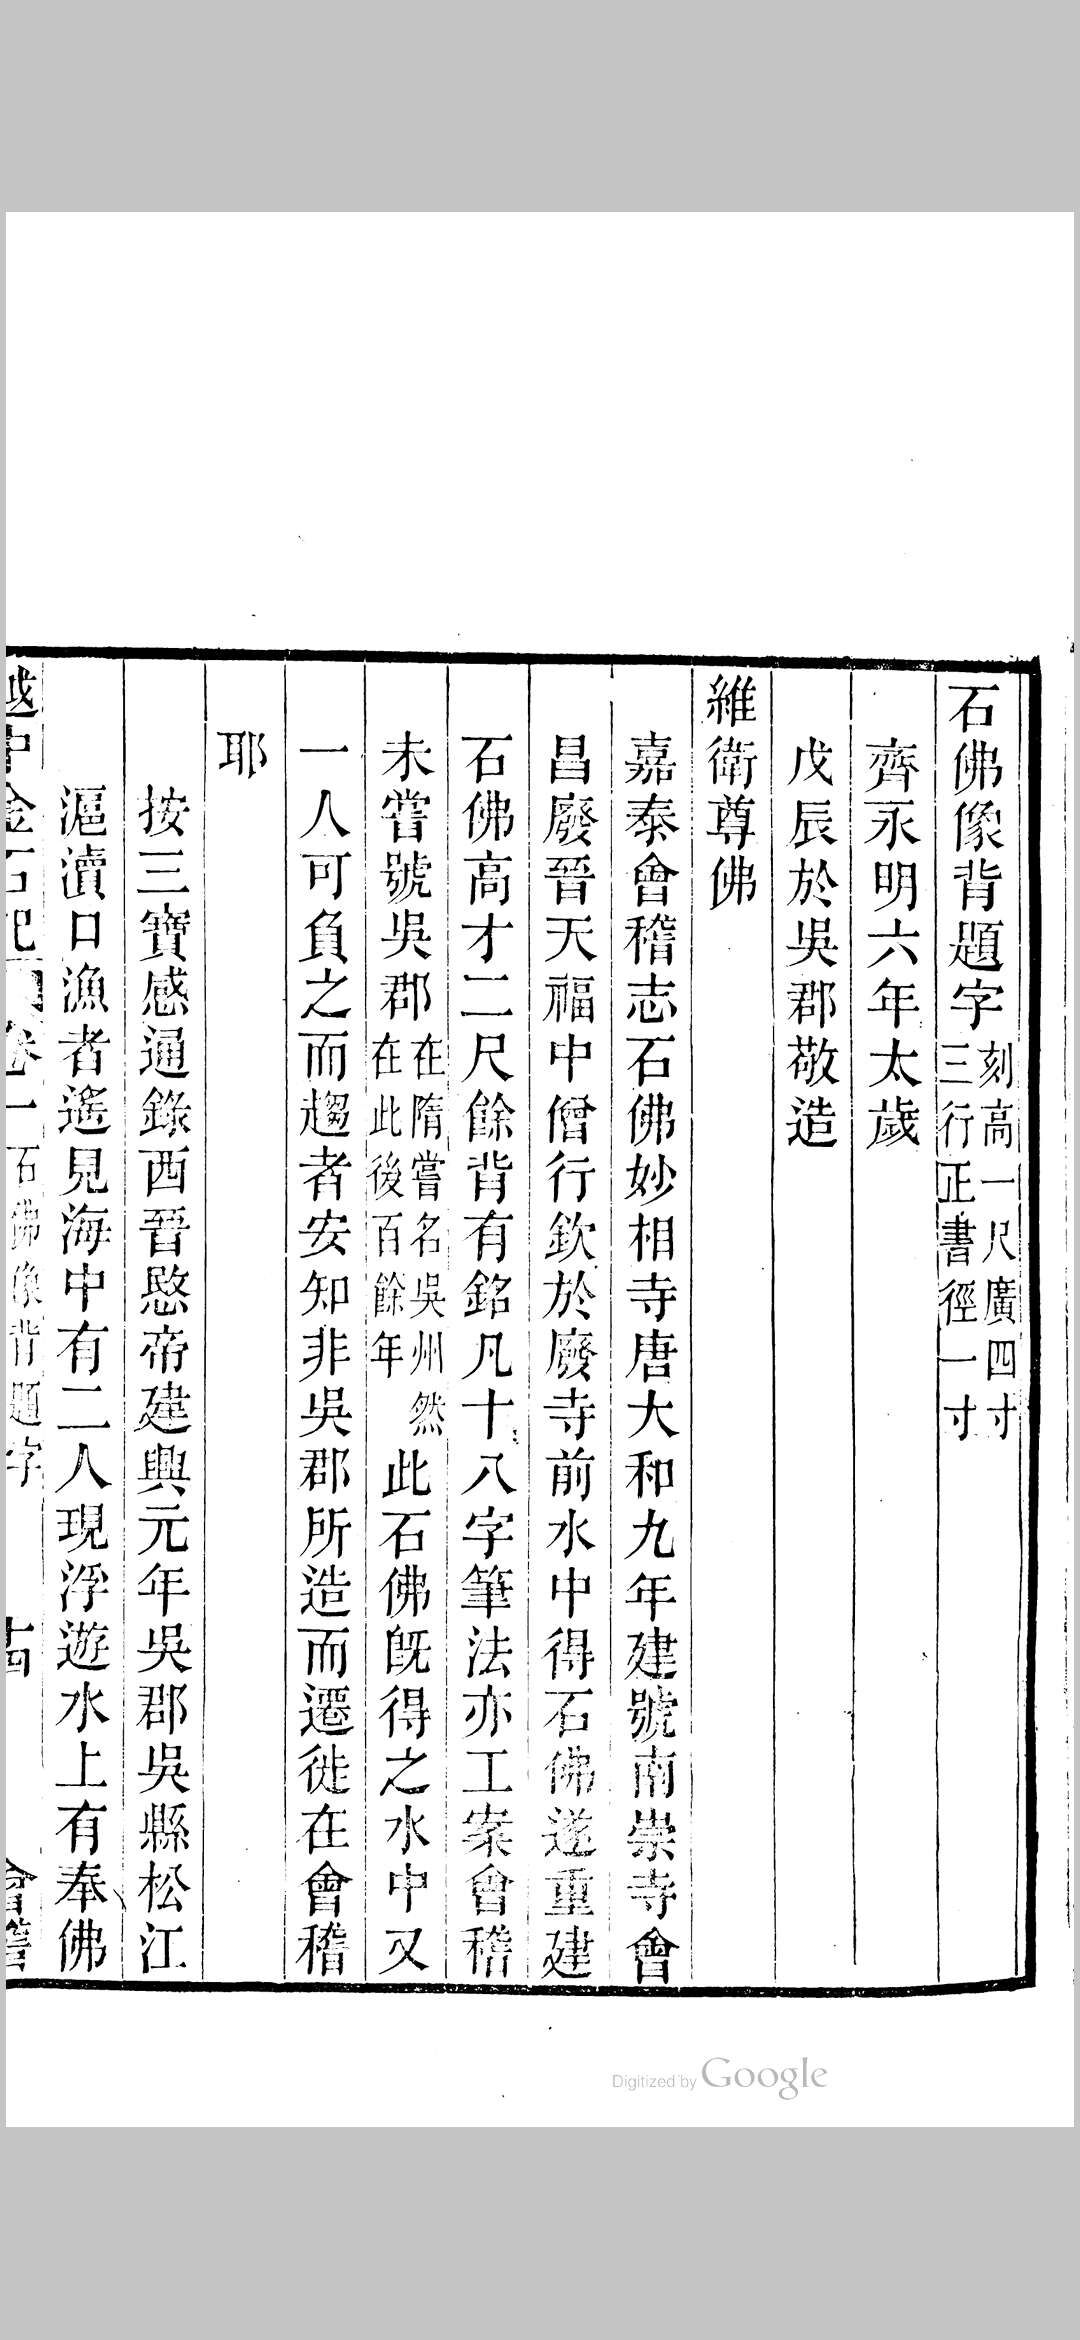 石佛像背題字刻高一尺廣四寸三行正書徑一寸
齊永明六年太歲
戊辰於吳郡敬造
維衛尊佛
嘉泰會稽志石佛妙相寺唐大和九年建號南崇寺會
昌廢晉天福中僧行欽於廢寺前水中得石佛遂重建
石佛高才二尺餘背有銘凡十八字筆法亦工案會稽
未嘗號吳郡在隋嘗名吳州然在此後百餘年此石佛旣得之水中又
一人可負之而趨者安知非吳郡所造而遷徙在會稽
耶
按三寶感通錄西晉愍帝建興元年吳郡吳縣松江
滬瀆口漁者遙見海中有二人現浮遊水上有奉佛
越中金石記 卷一石佛像背題字 十四 會稽
Digitized by Google